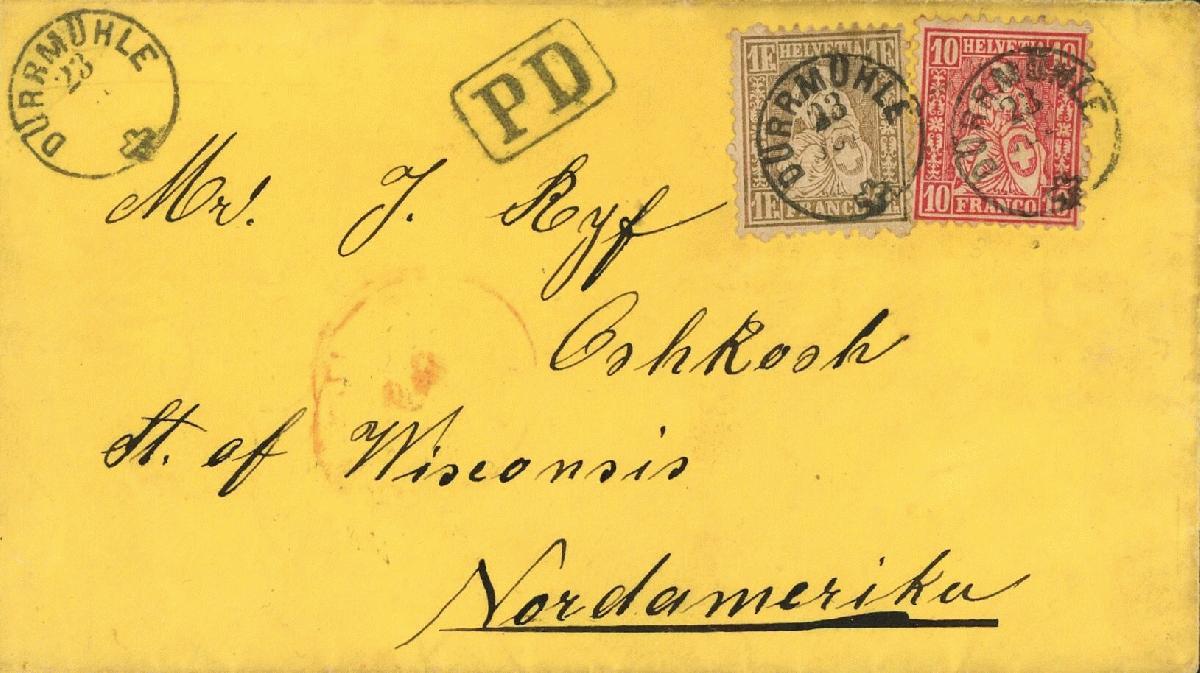 DÜRRMÜHLE
23
PD
1F HELVETIA 1F
DÜRRMÜHLE
23
1F FRANCO
10 HELVETIA 10
DÜRRMÜHLE
23
10 FRANCO 10
Mr. J. Ryf
Oshkosh
St. of Wisconsis
Nordamerika